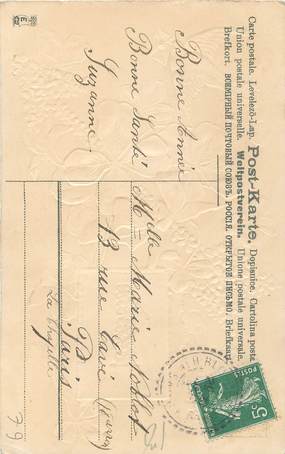 Carte postale. Levelező-Lap. Post-Karte. Dopisnice. Cartolina postale
Union postale universelle. Weltpostverein. Unione postale universale.
Brefkort. ВСЕМІРНЫЙ ПОЧТОВЫЙ СОЮЗЪ. РОССІЯ. ОТКРЫТОЕ ПИСЬМО. Briefkaart
Bonne Année
Bonne Santé
Suzanne.
Melle Marie
13 rue
Paris
La Chapelle
79
5
POSTES